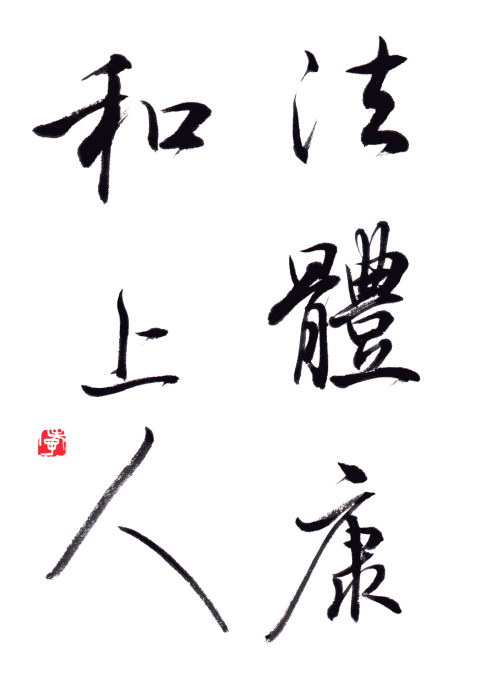 法體康
和上人